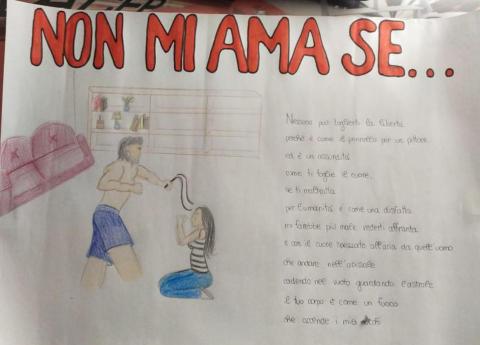 NON MI AMA SE...
Nessuno può toglierti la libertà
perché è come il pennello per un pittore
ed è un assurdità
come ti toglie il cuore
se ti maltratta
per l'umanità è come una disfatta
mi farebbe più male vederti affranta
e con il cuore spezzato all'aria da quell'uomo
che andare nell'abisso
cadendo nel vuoto guardando
il tuo corpo è come un fuoco
che accende i miei